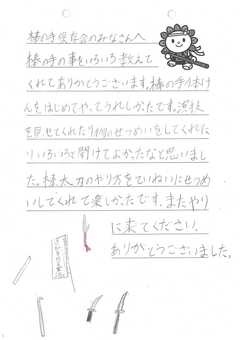 棒の手保存会のみなさんへ
棒の手の事をいろいろ教えて
くれてありがとうございます。棒の手の体け
んをはじめてやってうれしかったです。演技
を見せてくれたり物のせつめいをしてくれた
りいろいろと聞けてよかったなと思いまし
た。棒、太刀のやり方をていねいにせつめ
いしてくれて楽しかったです。またやり
に来てください。
ありがとうございました。